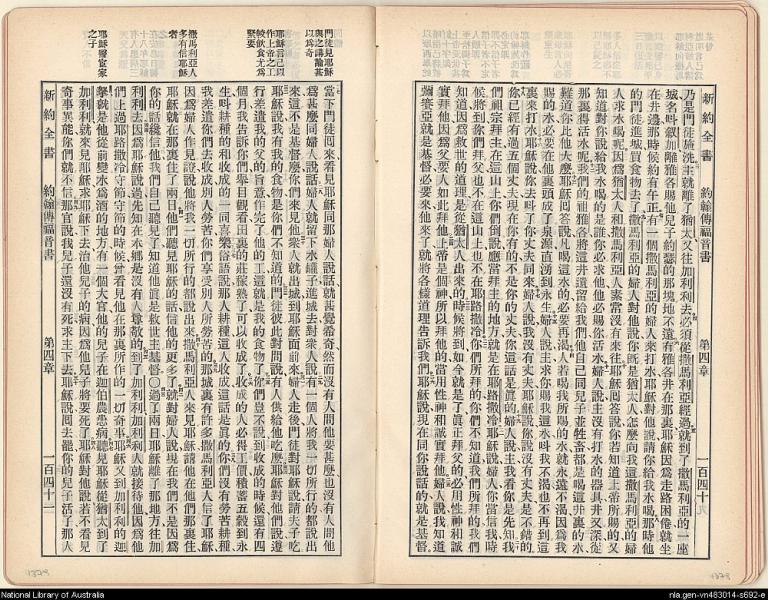 新約全書 約翰傳福音書 第四章 一百四十
乃是門徒施洗主就離了猶太又往加利利去必須從撒馬利亞經過就到了撒馬利亞的一座
城名叫叙加離雅各賜他兒子約瑟的那塊地不遠有雅各井在那裏耶穌因爲走路困倦就坐
在井邊那時候約有午正有一個撒馬利亞的婦人來打水耶穌對他說請你給我水喝那時他
的門徒進城買食物去了撒馬利亞的婦人對他說你旣是猶太人怎麽向我這撒馬利亞的婦
人求水喝呢因爲猶太人和撒馬利亞人素常沒有來往耶穌囘答說你若知道上帝所賜的又
知道對你說給我水喝的是誰你必求他他必賜你活水婦人說主沒有打水的器具井又深從
那裏得活水呢我們的祖雅各將這井遺留給我們他自己同兒子並牲畜都是喝這井裏的水
難道你比他大麽耶穌囘答說凡喝這水的必要再渴人若喝我所賜的水就永遠不渴因爲我
賜的水必要在他裏頭成了泉源直湧到永生婦人說主求你賜我這水呌我不渴也不再到這
裏來打水耶穌說你去呌了你丈夫同來婦人說我沒有丈夫耶穌說你說沒有丈夫是不錯的
你已經有過五個丈夫現在你有的不是你的丈夫你這話是眞的婦人說主我看你是先知我
們祖宗拜主在這山上你們倒說應當拜主的地方就是在耶路撒冷耶穌說婦人你當信我時
候將到你們拜父也不在這山上也不在耶路撒冷你們所拜的你們不知道我們所拜的我們
知道因爲救世的道理是從猶太人出來的時候將到如今就是了眞正拜父的必用性神和誠
實拜他因爲父要人如此拜他上帝是個神所以拜他的當用性神和誠實拜他婦人說我知道
彌賽亞就是基督必要來他來了就將各樣道理告訴我們耶穌說現在同你說話的就是基督
門徒見耶穌
與之講論甚
以爲奇
耶穌言己以
作上帝之工
較飲食尤爲
緊要
撒馬利亞人
多有信耶穌
者
耶穌醫宦家
之子
當下門徒囘來看見耶穌同那婦人說話就甚覺希奇然而沒有人問他要甚麽也沒有人問他
爲甚麽同婦人說話婦人就留下水罐子進城去對衆人說有一個人將我一切所行的都說出
來這不是基督麽你們來見他衆人就出城到耶穌面前來婦人走後門徒對耶穌說請夫子吃
耶穌說我有我的食物是你們不知道的門徒彼此對問說有人供給他吃麽耶穌對他們說遵
行差遣我的父的旨意作完了他的工這就是我的食物了你們豈不說到收成的時候還有四
個月我告訴你們舉目觀看田裏的莊稼熟了可以收成了收成的人必得工價積蓄五穀到永
生呌耕種的和收成的一同喜樂俗語說那人耕種這人收成這話是眞的你們沒有勞苦耕種
我差遣你們去收成別人勞苦你們享受別人所勞苦的那城裏有許多撒馬利亞人信了耶穌
因爲婦人作見證說他將我一切所行的都說出來撒馬利亞人來見耶穌請他在他們那裏住
耶穌就在那裏住了兩日他們聽見耶穌的話信他的更多了就對婦人說現在我們不是因爲
你的話纔信他我們自己聽見了知道他眞是救世主基督○過了兩日耶穌離了那地方往加
利利去因爲耶穌說過先知在本鄉是沒有人尊敬的到了加利利加利利人就接待他因爲他
們上過耶路撒冷守節守節的時候曾看見他在那裏所作的一切奇事耶穌又到加利利的迦
拏就是他從前變水爲酒的地方有一個大官他的兒子在迦伯農患病聽見耶穌從猶太到了
加利利就來見耶穌求耶穌下去治他兒子的病因爲他兒子將要死了耶穌對他說若不看見
奇事異能你們就不信那官說我兒子還沒有死求主下去耶穌說囘去罷你的兒子活了那人
新約全書 約翰傳福音書 第四章 一百四十一
National Library of Australia
nla.gen-vn483014-s692-e